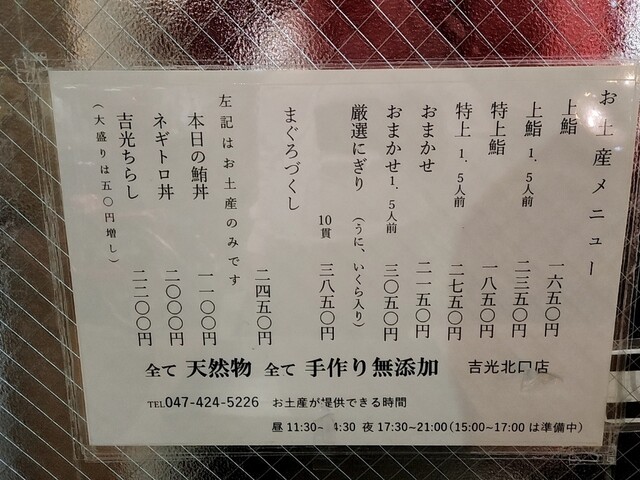 お土産メニュー
上鮨 一六五〇円
上鮨 1.5人前 二三五〇円
特上鮨 一八五〇円
特上 1.5人前 二七五〇円
おまかせ 二一五〇円
おまかせ1.5人前 三〇五〇円
厳選にぎり (うに、いくら入り)
10貫 三八五〇円
まぐろづくし 二四五〇円
左記はお土産のみです
本日の鮪丼 一一〇〇円
ネギトロ丼 二〇〇〇円
吉光ちらし 二二〇〇円
(大盛りは五〇円増し)
全て 天然物 全て 手作り無添加 吉光北口店
TEL047-424-5226 お土産が提供できる時間
昼 11:30~ 4:30 夜 17:30~21:00(15:00~17:00は準備中)